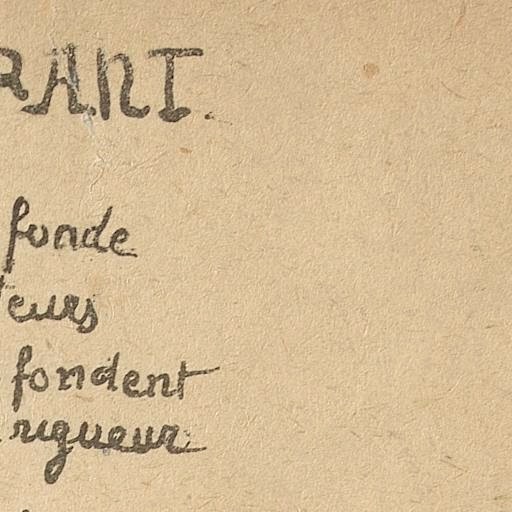 RANT.
fonde
teurs
fondent
rigueur